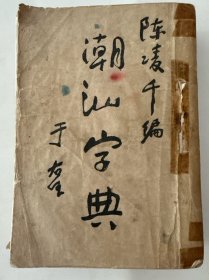 陈凌千编
潮汕字典
于右任